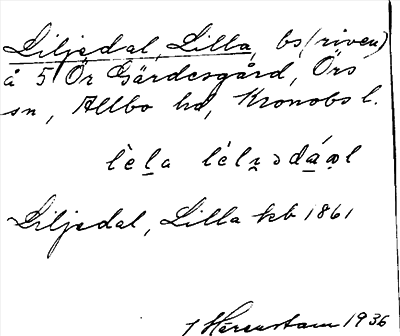 Liljedal, Lilla, bs (riven)
å 5 Ör Gärdesgård, Örs
sn, Allbo hd, Kronobs l.
lè l̲a lélʒəda̲al
Liljedal, Lilla kb 1861
1936